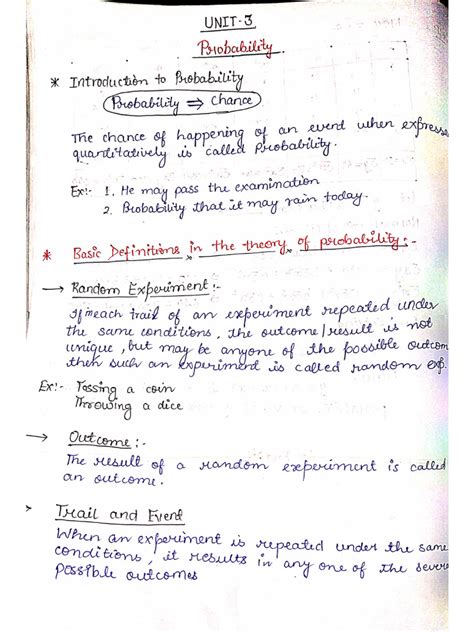 UNIT-3
Probability
* Introduction to Probability
Probability ⇒ Chance
The chance of happening of an event when express
quantitatively is called Probability.
Ex:- 1. He may pass the examination
2. Probability that it may rain today.
* Basic Definitions in the theory of probability:-
→ Random Experiment:-
If in each trail of an experiment repeated under
the same conditions, the outcome/result is not
unique, but may be anyone of the possible outcom
then such an experiment is called random exp.
Ex:- Tossing a coin
Throwing a dice
→ Outcome:-
The result of a random experiment is called
an outcome.
> Trail and Event
When an experiment is repeated under the same
conditions, it results in any one of the severa
possible outcomes